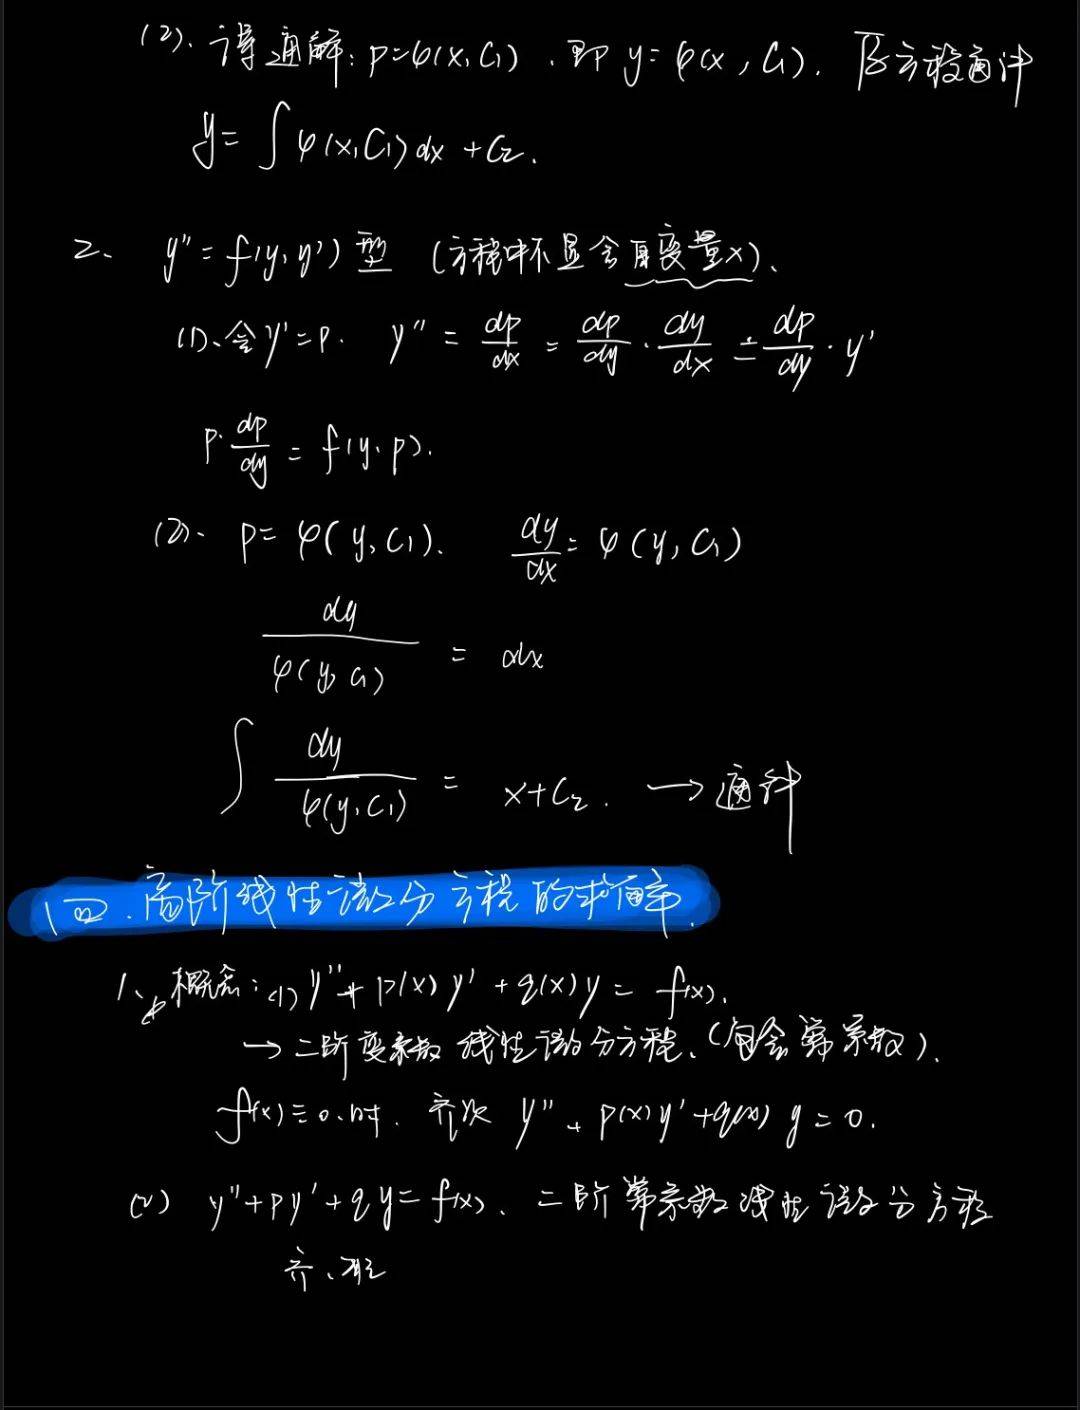 (2). 得通解: p=φ(x,C₁). 即 y=φ(x, C₁). 原方程通解
y=∫φ(x,C₁)dx+C₂.
2、 y″=f(y,y′)型 (方程中不显含自变量x).
(1)、令y′=p. y″=dp/dx=dp/dy·dy/dx=dp/dy·y′
p·dp/dy=f(y,p).
(2)、 p=φ(y,C₁). dy/dx=φ(y,C₁)
dy/φ(y,C₁)=dx
∫dy/φ(y,C₁)=x+C₂. →通解
四、高阶线性微分方程的求解.
1、概念: (1) y″+p(x)y′+q(x)y=f(x).
→二阶变系数线性微分方程、(包含常系数).
f(x)≡0.时. 齐次 y″+p(x)y′+q(x)y=0.
(2) y″+py′+qy=f(x). 二阶常系数线性微分方程
齐、